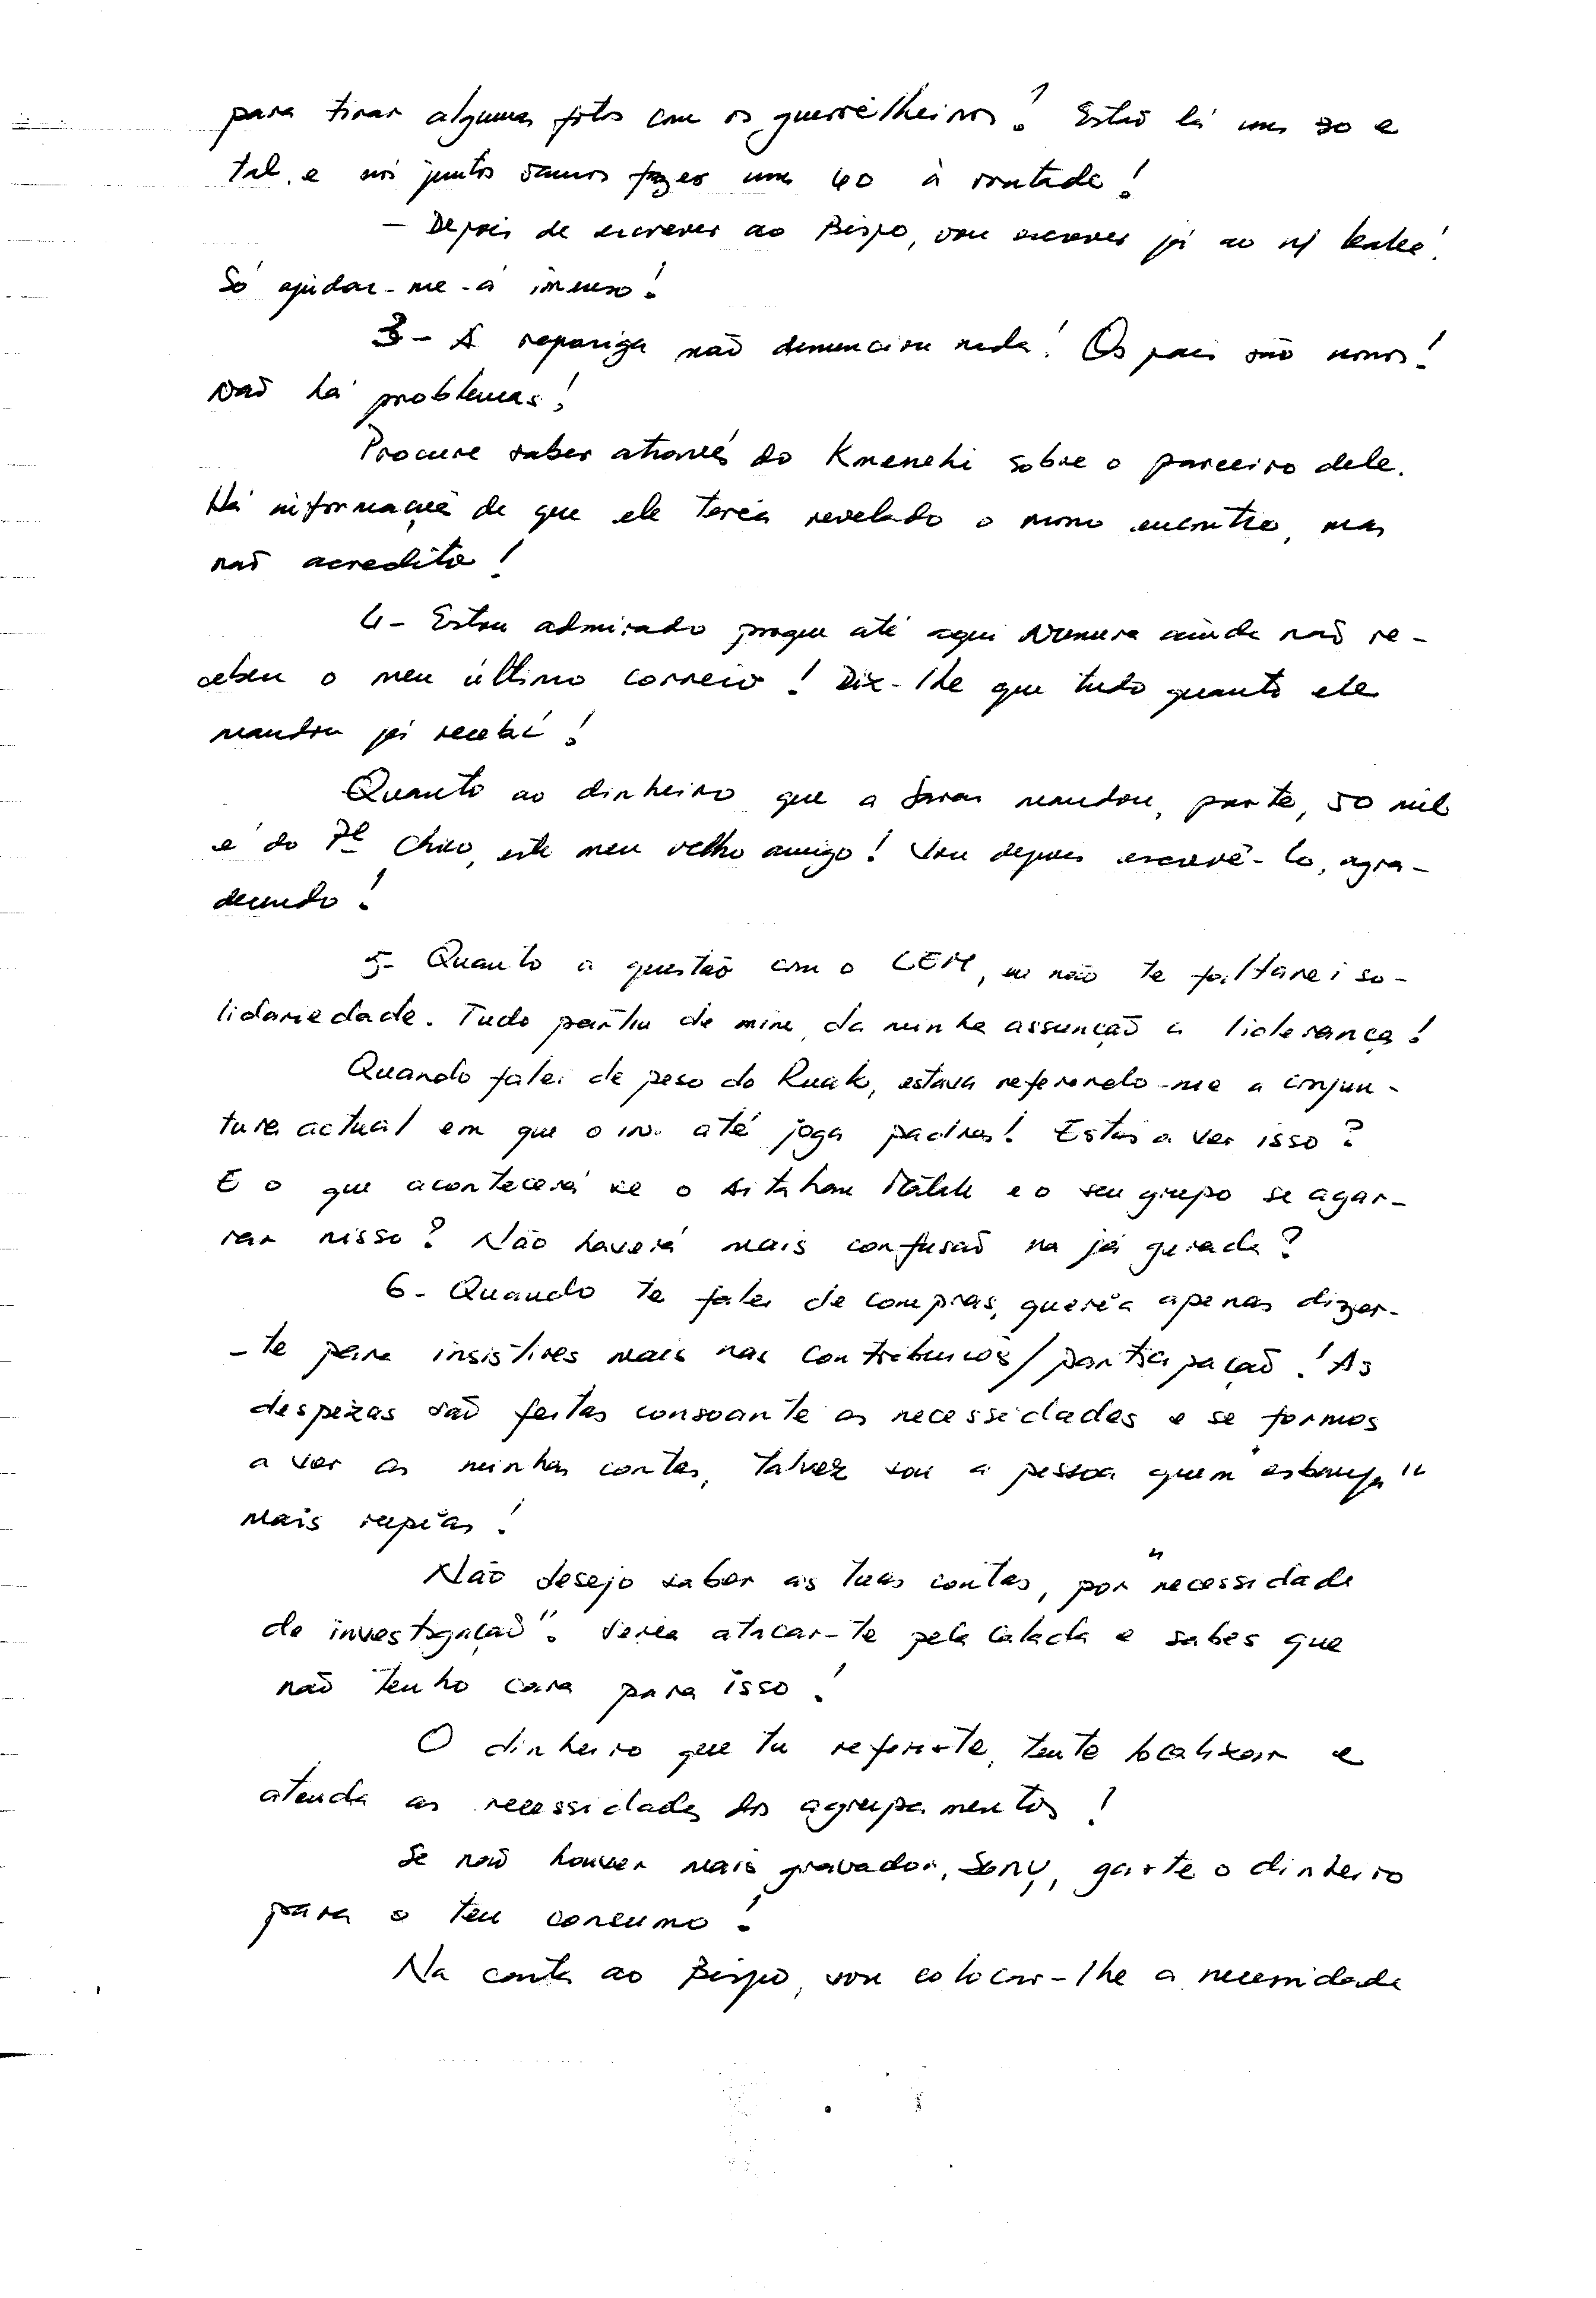 para tirar algumas fotos com os guerrilheiros! Estão lá uns 30 e
tal, e nós juntos vamos fazer uns 40 à vontade!
- Depois de escrever ao Bispo, vou escrever já ao n/
Só ajudar-me-á imenso!
3- A rapariga não denunciou nada! Os pais são nossos!
Não há problemas!
Procure saber através do Kmenehi sobre o parceiro dele.
Há informações de que ele teria revelado o nosso encontro, mas
não acredito!
4- Estou admirado porque até aqui ainda não re-
cebeu o meu último correio! Diz-lhe que tudo quanto ele
mandou já recebí!
Quanto ao dinheiro que a mandou, parte, 50 mil
é do Pe Chico, este meu velho amigo! Vou depois escrevê-lo, agra-
decendo!
5- Quanto a questão com o CEM, eu não te faltarei so-
lidariedade. Tudo partiu de mim, da minha assunção a liderança!
Quando falei de peso do Ruak, estava referindo-me a conjun-
tura actual em que o in. até joga padres! Estás a ver isso?
E o que acontecerá se o e o seu grupo se agar-
rar nisso? Não haverá mais confusão na já gerada?
6- Quando te falei de compras, queria apenas dizer-
-te para insistires mais nas contribuições/participação! As
despezas são feitas consoante as necessidades e se formos
a ver as minhas contas, talvez sou a pessoa quem "esbanja"
mais rupias!
Não desejo saber as tuas contas, por "necessidade
de investigação". Seria atacar-te pela calada e sabes que
não tenho cara para isso!
O dinheiro que tu referiste, tente localizar e
atenda as necessidades dos agrupamentos!
Se não houver mais gravador, Sony, gaste o dinheiro
para o teu consumo!
Na carta ao Bispo, vou colocar-lhe a necessidade